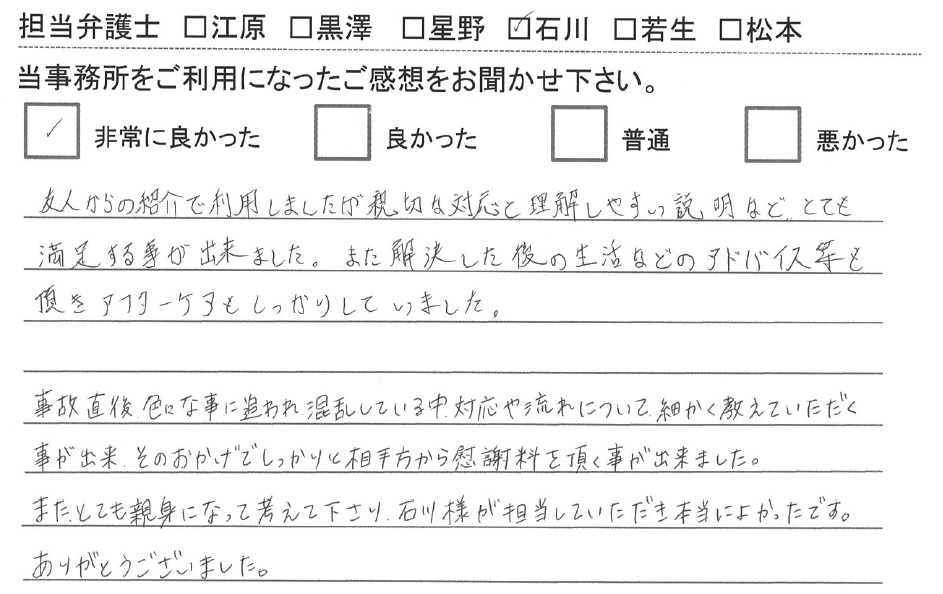 担当弁護士 □江原 □黒澤 □星野 ☑石川 □若生 □松本
当事務所をご利用になったご感想をお聞かせ下さい。
☑ 非常に良かった □ 良かった □ 普通 □ 悪かった
友人からの紹介で利用しましたが親切な対応と理解しやすい説明など、とても
満足する事が出来ました。また解決した後の生活などのアドバイス等も
頂きアフターケアもしっかりしていました。
事故直後色々な事に追われ混乱している中、対応や流れについて、細かく教えていただく
事が出来、そのおかげでしっかりと相手方から慰謝料を頂く事が出来ました。
また、とても親身になって考えて下さり、石川様が担当していただき本当によかったです。
ありがとうございました。